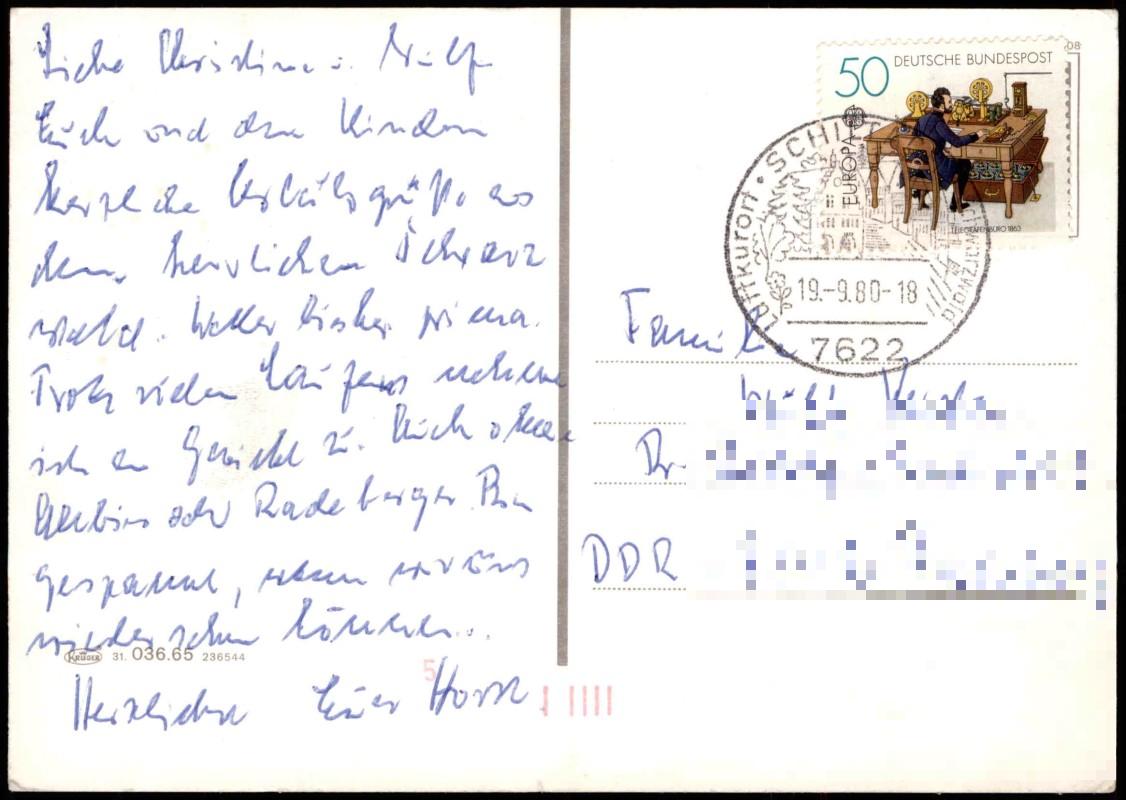 Liebe Christine u. Rulf
Euch und den Kindern
herzliche Urlaubsgrüße aus
dem herrlichen Schwarz
wald. Wetter bisher prima.
Trotz vielen Laufens nehme
ich an Gewicht zu. Auch ohne
oder Radeberger. Bin
gespannt, wann wir uns
wiedersehen können..
Herzlichst Euer Horst
KRÜGER 31. 036.65 236544
5
08
50 DEUTSCHE BUNDESPOST
EUROPA
TELEGRAFENBÜRO 1863
Luftkurort · SCHI
19.-9.80-18
7622
Familie
Dr.
DDR